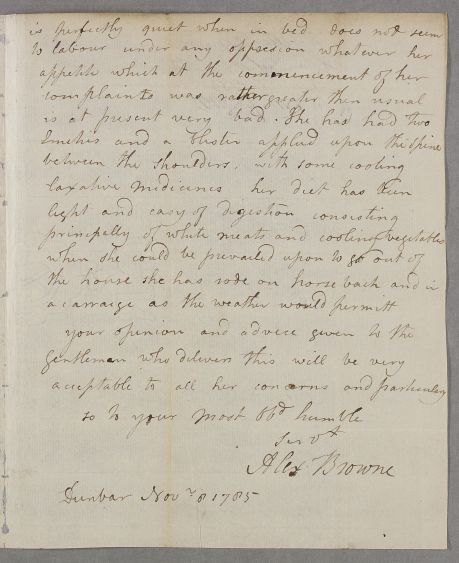 is perfectly quiet when in bed does not seem
to labour under any oppresion whatever her
appetite which at the commencement of her
complaints was rather greater then usual
is at present very bad. She has had two
Emetics and a blister applied upon the Spine
between the shoulders. with some cooling
laxative midicines her diet has been
light and easy of digestion consisting
principally of white meats and cooling vegetables
when she could be prevailed upon to go out of
the house she has rode on horse back and in
a carraige as the weather would permitt
your openion and advice given to the
gentleman who delivers this will be very
acceptable to all her concerns and particulary
so to your most Obd humble
Servt
Alex Browne
Dunbar Novr 8 1785